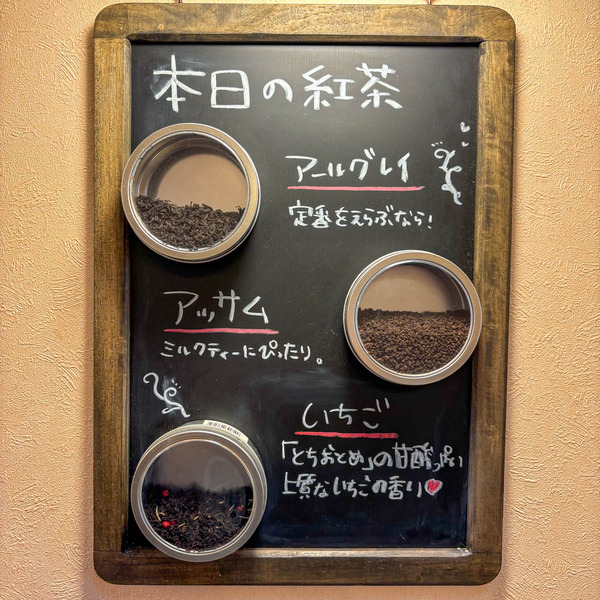 本日の紅茶
アールグレイ
定番をえらぶなら!
アッサム
ミルクティーにぴったり。
いちご
「とちおとめ」の甘酸っぱい
上質ないちごの香り♥